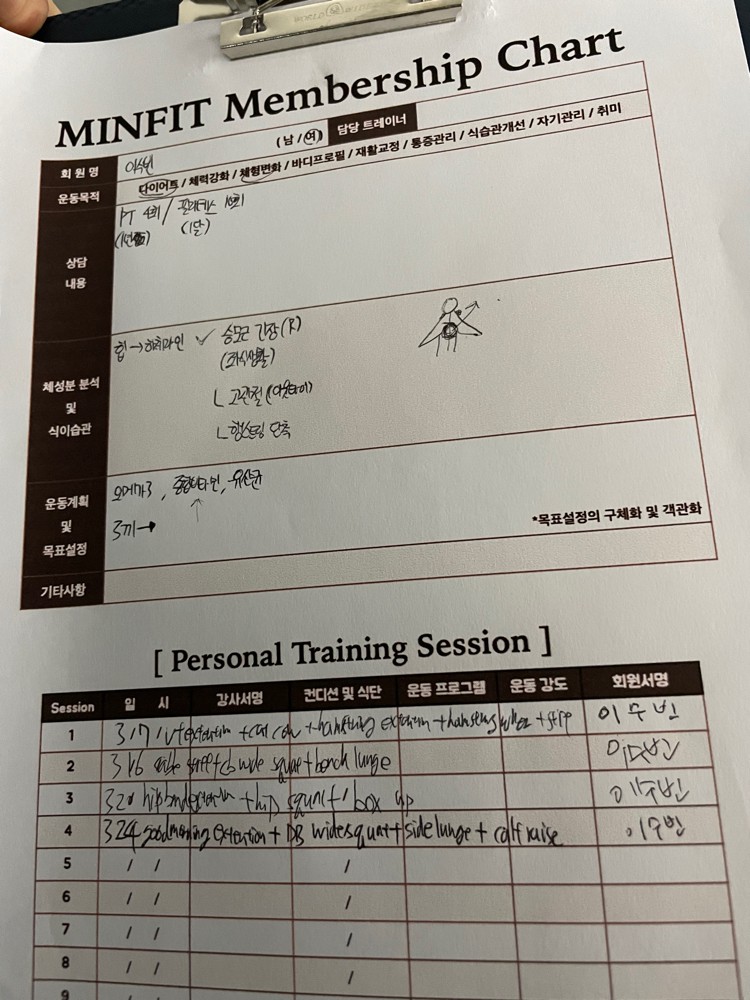 MINFIT Membership Chart
회 원 명 이수빈 ( 남 / 여 ) 담당 트레이너
운동목적 다이어트 / 체력강화 / 체형변화 / 바디프로필 / 재활교정 / 통증관리 / 식습관개선 / 자기관리 / 취미
상담
내용
PT 4회 / 필라테스 10회
(1달)
체성분 분석
및
식이습관
힙 → ✓ 승모근 긴장 (R)
(좌식생활)
ㄴ 고관절
ㄴ 햄스트링 단축
운동계획
및
목표설정
오메가3, 종합비타민, 유산균
↑
3끼 →
*목표설정의 구체화 및 객관화
기타사항
[ Personal Training Session ]
Session 일 시 강사서명 컨디션 및 식단 운동 프로그램 운동 강도 회원서명
1 3/7 extention + cat cow + hamstring extention + 이수빈
2 3/16 wide squat + bench lunge 이수빈
3 + hip squat + box up 이수빈
4 324 goodmorning extention + DB wide squat + side lunge + calf raise 이수빈
5 / / /
6 / / /
7 / / /
8 / / /
9